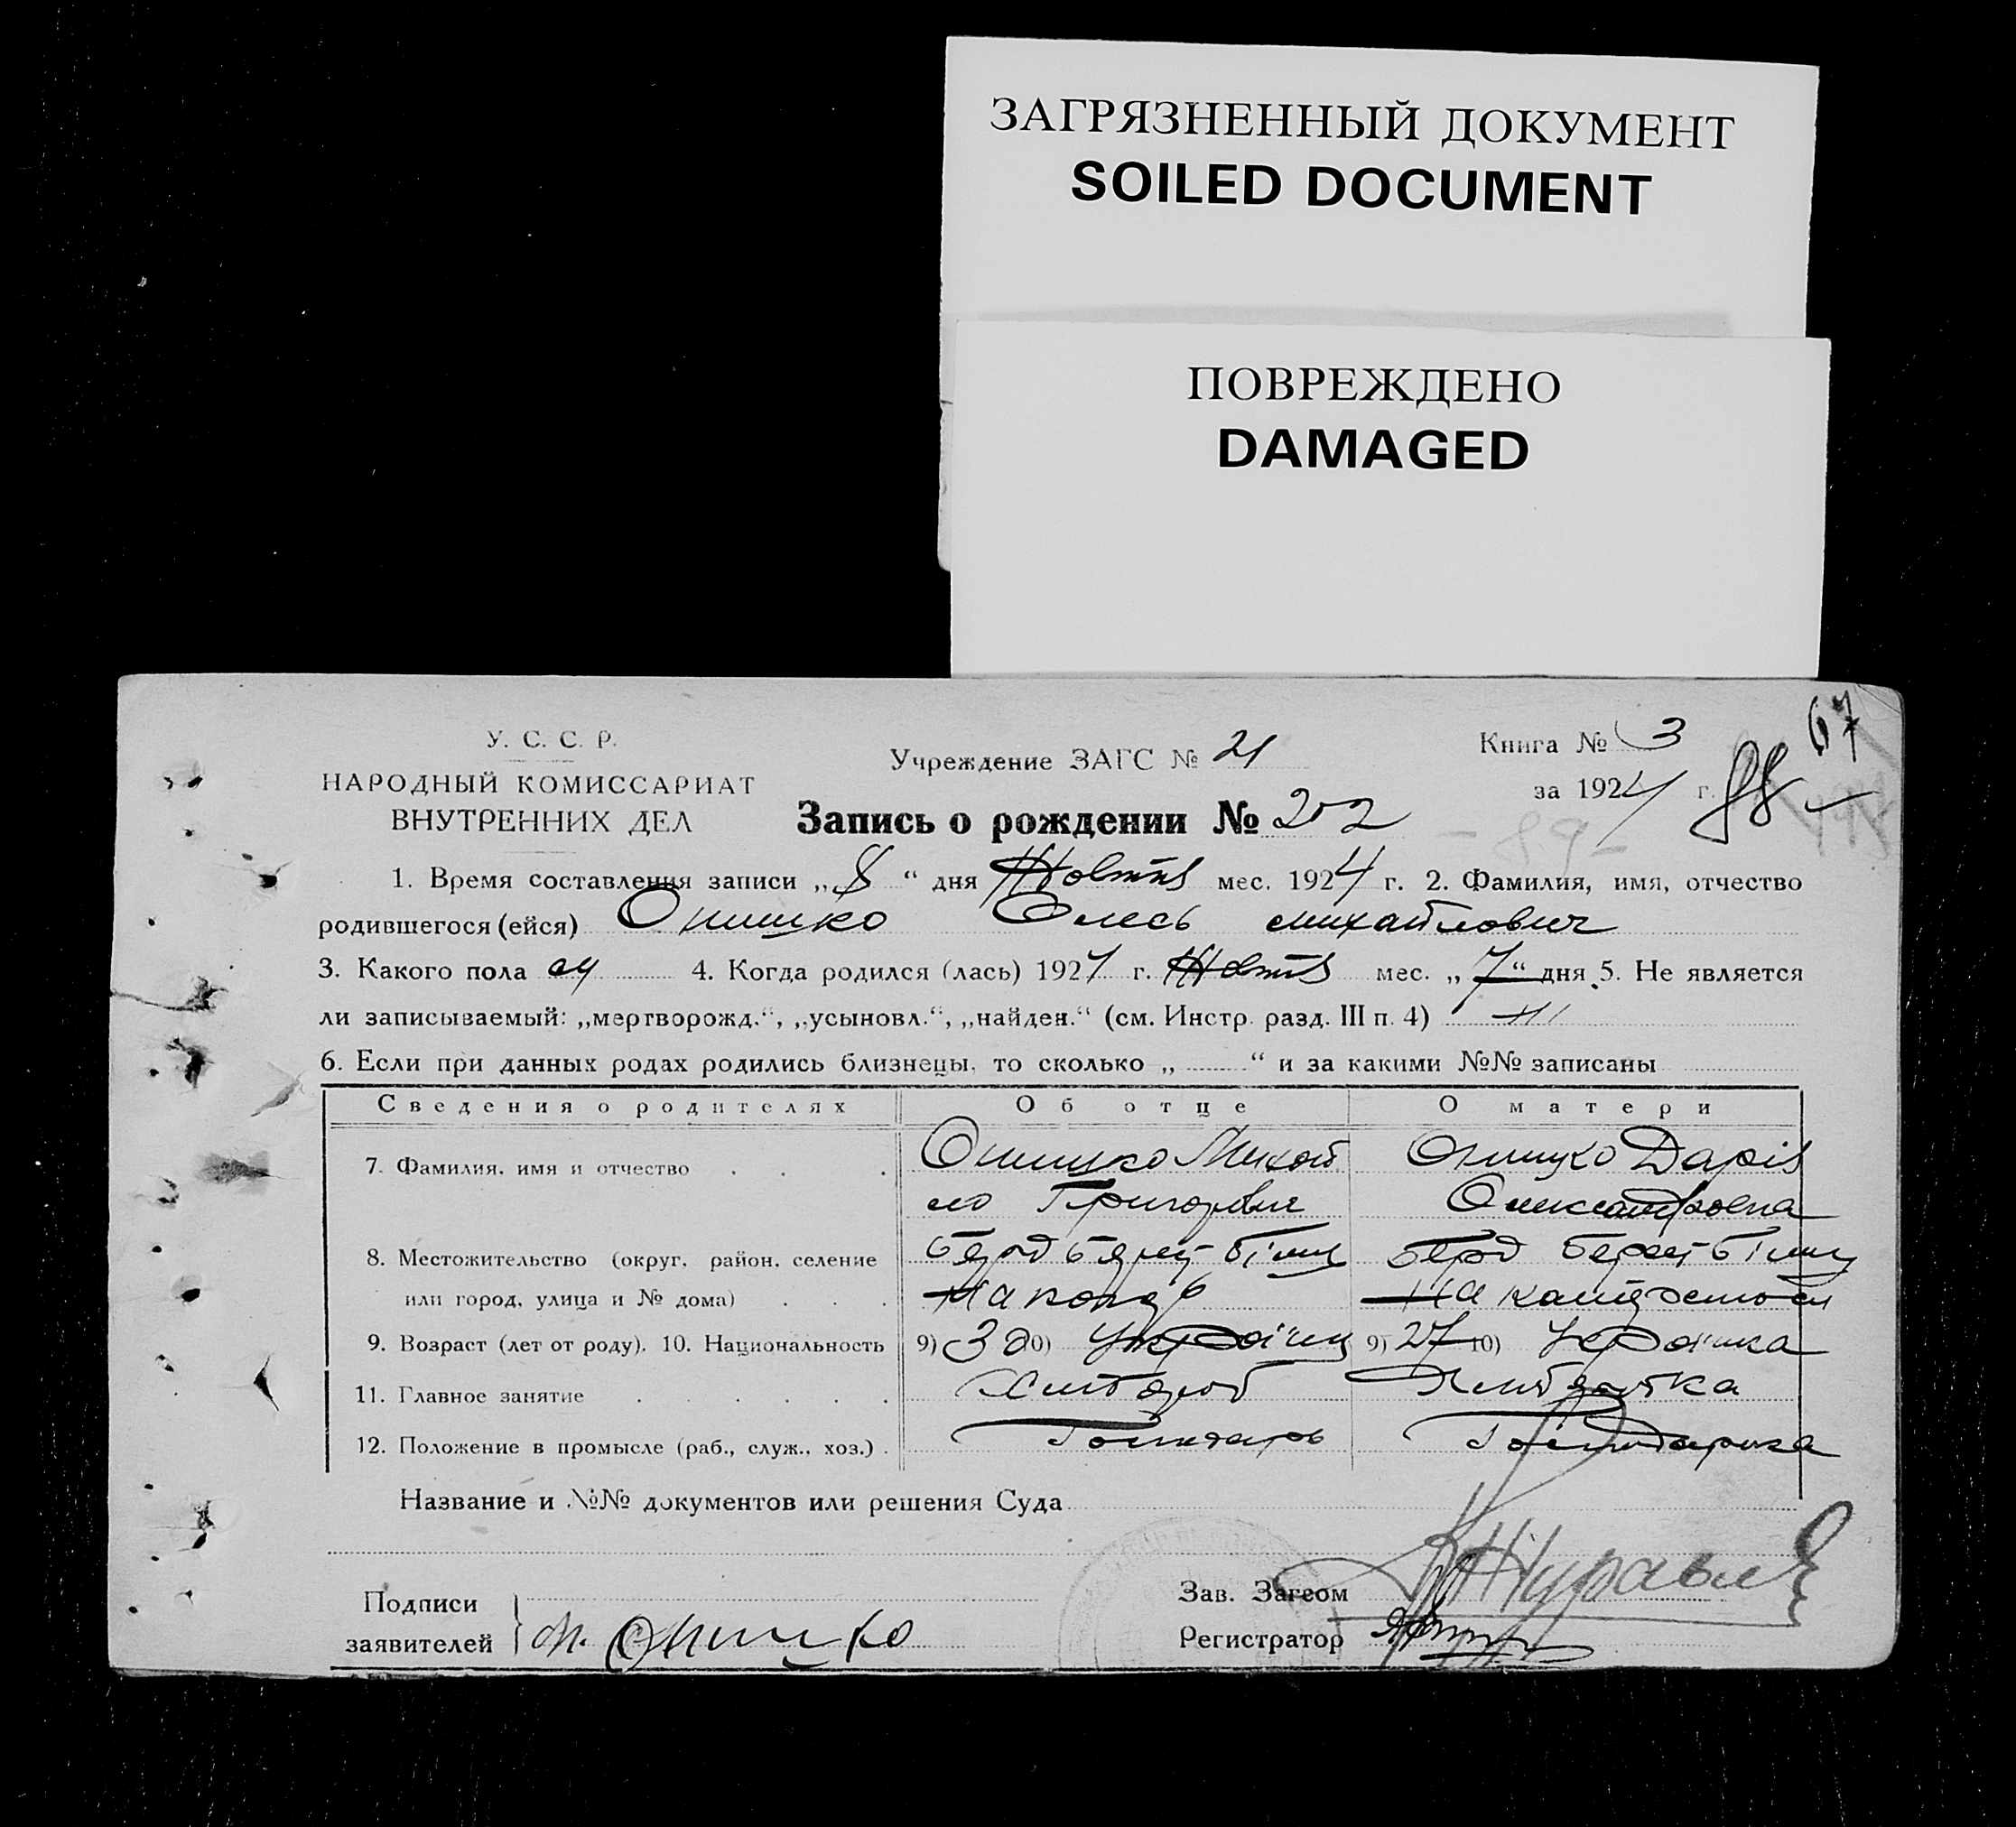 ЗАГРЯЗНЕННЫЙ ДОКУМЕНТ
SOILED DOCUMENT
ПОВРЕЖДЕНО
DAMAGED
67
У. С. С. Р.
НАРОДНЫЙ КОМИССАРИАТ
ВНУТРЕННИХ ДЕЛ
Учреждение ЗАГС № 21
Книга № 3
за 1924 г. 88
Запись о рождении № 202
- 89 -
1. Время составления записи „ 8 “ дня Жовтня мес. 1924 г. 2. Фамилия, имя, отчество
родившегося (ейся) Онишко Олесь Михайлович
3. Какого пола 4. Когда родился (лась) 1924 г. Жовтня мес. „ 7 “ дня 5. Не является
ли записываемый: „мертворожд.“, „усыновл.“, „найден.“ (см. Инстр. разд. III п. 4)
6. Если при данных родах родились близнецы, то сколько „ “ и за какими №№ записаны
Сведения о родителях Об отце О матери
7. Фамилия, имя и отчество Онишко Михай Онишко Дарія
ло Григорович Олександровна
8. Местожительство (округ, район, селение
или город, улица и № дома)
9. Возраст (лет от роду). 10. Национальность 9) 30 10) Українц 9) 27 10) Українка
11. Главное занятие Хлібороб Хліборобка
12. Положение в промысле (раб., служ., хоз.) Господарь Господарка
Название и №№ документов или решения Суда
Подписи
заявителей М. Онишко
Зав. Загсом Журавль
Регистратор